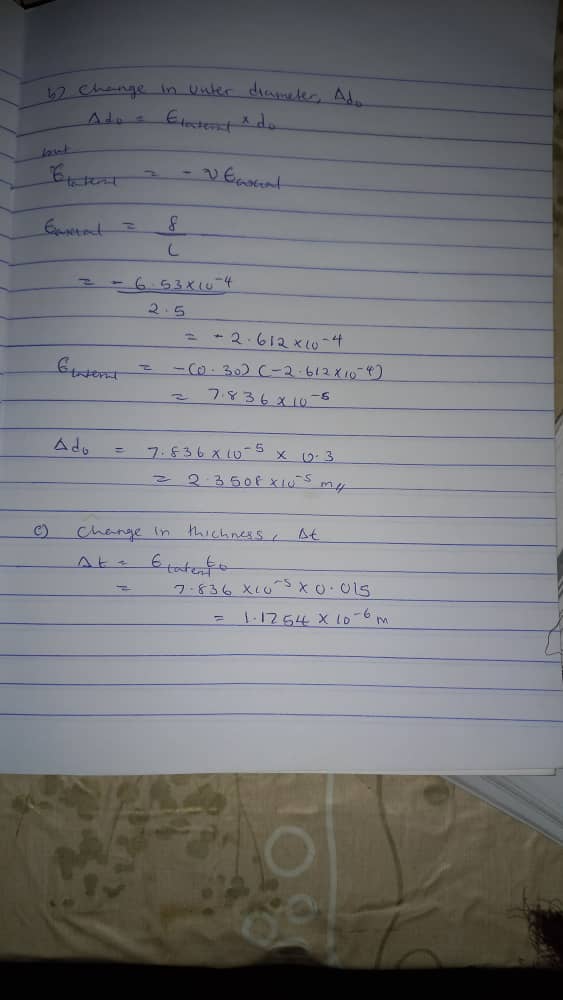 b) Change in outer diameter, Δdo
Δdo = Elateral × do
but
Elateral = - ν Eaxial
Eaxial = δ
L
= - 6.53×10-4
2.5
= - 2.612 ×10-4
Elateral = -(0.30) (-2.612×10-4)
= 7.836 ×10-5
Δdo = 7.836×10-5 × 0.3
= 2.3508 ×10-5 m//
c) Change in thickness, Δt
Δt = Elateral to
= 7.836 ×10-5 × 0.015
= 1.1754 × 10-6 m